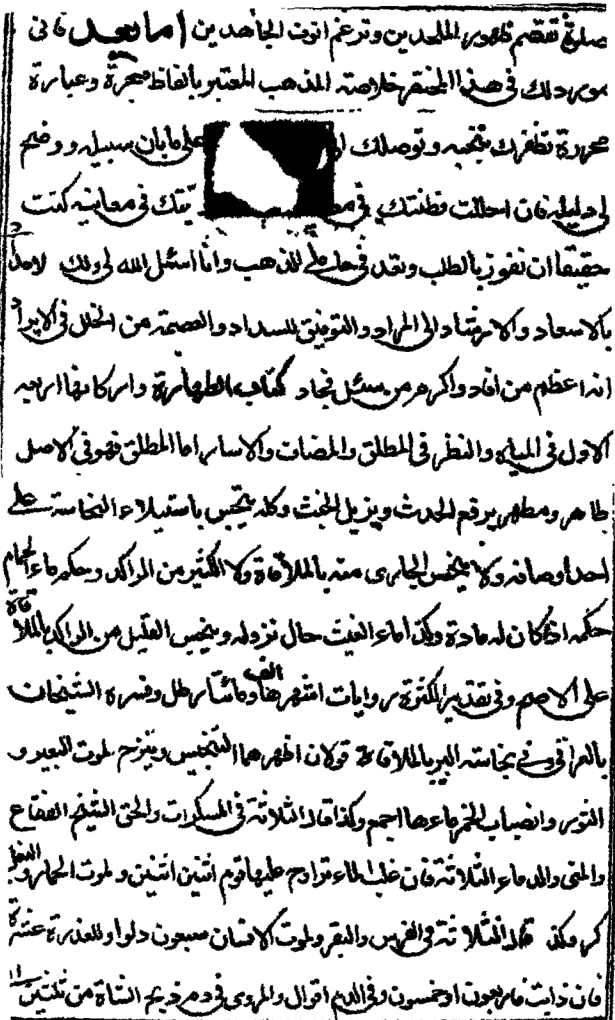 صلوة تقصم ظهور الملحدين وترغم انوف الجاهدين اما بعد فانى
مورد لك فى هذا المختصر خلاصة المذهب المعتبر بالفاظ محررة وعبارة
محررة تظفرك بنخبه وتوصلك على ما بان سبيله ووضح
لى دليله فان احللت فطنتك فى يتك فى معانيه كنت
حقيقا ان تفوز بالطلب وتعد فى حاملى المذهب وانا اسئل الله لى ولك
بالاسعاد والارشاد الى المراد والتوفيق للسداد والعصمة من الخلل فى الايراد
انه اعظم من افاد واكرم من سئل فجاد كتاب الطهارة واركانها اربعه
الاول فى المياه والنظر فى المطلق والمضاف والاسار اما المطلق فهو فى الاصل
طاهر ومطهر يرفع الحدث ويزيل الخبث وكله ينجس باستيلاء النجاسة على
احد اوصافه ولا ينجس الجارى منه بالملاقاة ولا الكثير من الراكد وحكم ماء الحمام
حكمه اذا كان له مادة وكذا ماء الغيث حال نزوله وينجس القليل من الراكد بالملاقاة
على الاصح وفى تقدير الكثرة روايات اشهرها الف ومائتا رطل وفسره الشيخان
بالعراقى وفى نجاسة البير بالملاقاة قولان اظهرهما التنجيس وينزح لموت البعير و
الثور وانصباب الخمر ماءها اجمع وكذا قال الثلاثة فى المسكرات والحق الشيخ الفقاع
والمنى والدماء الثلاثة فان غلب الماء تراوح عليها قوم اثنين اثنين ولموت الحمار والبغل
كر وكذا قال الثلاثة فى الفرس والبقر ولموت الانسان سبعون دلوا وللعذرة عشرة
فان ذابت فاربعون او خمسون وفى الدم اقوال والمروى فى دم ذبح الشاة من ثلثين